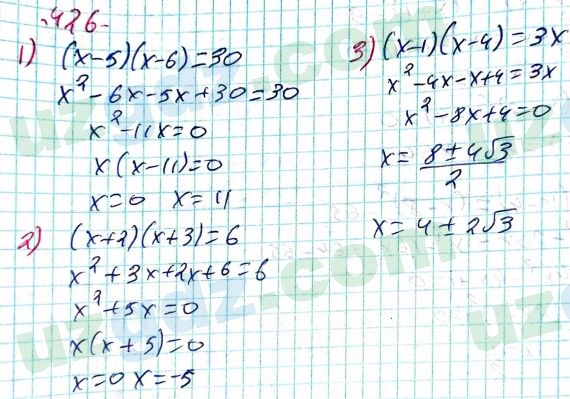 426-
1) (x-5)(x-6)=30
x²-6x-5x+30=30
x²-11x=0
x(x-11)=0
x=0 x=11
2) (x+2)(x+3)=6
x²+3x+2x+6=6
x²+5x=0
x(x+5)=0
x=0 x=-5
3) (x-1)(x-4)=3x
x²-4x-x+4=3x
x²-8x+4=0
x= 8±4√3
2
x=4±2√3
uzgdz.com